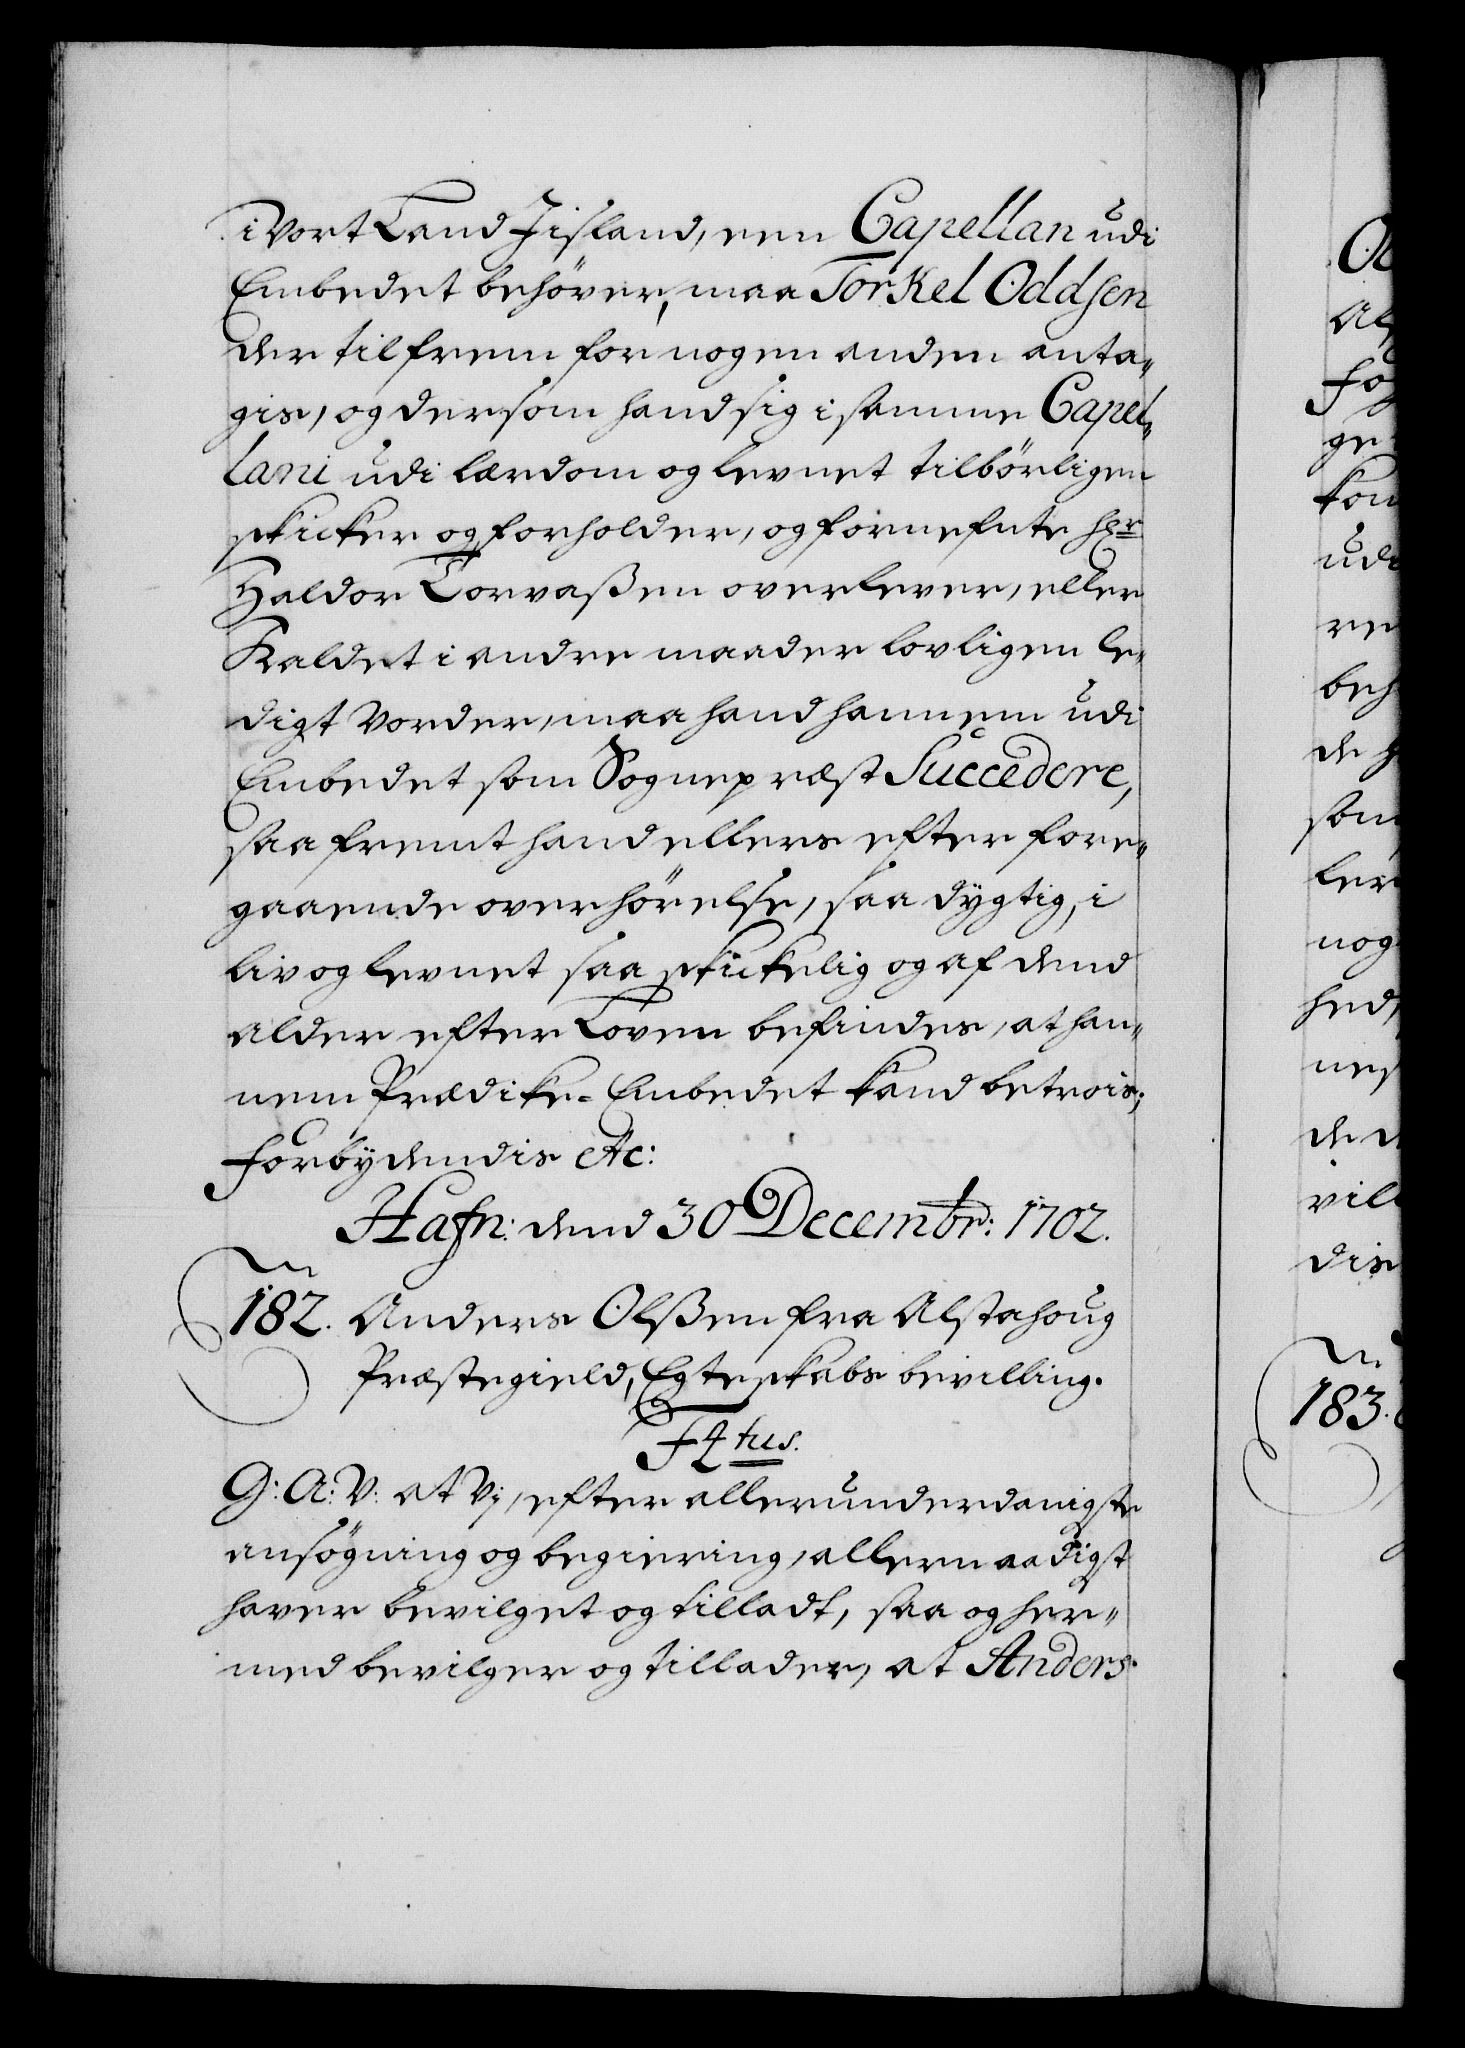 i Vort Land Jisland, een Capellan udi
Embedet behöver, maa Torkel Oddsen
der til frem for nogen anden anta„
gis, og dersom hand sig i samme Capel„
lani udi lærdom og levnet tilbörligen
skicker og forholder, og fornefnte hr
Haldor Torvaßen overlever, eller
Kaldet i andre maader lovligen le„
digt vorder, maa hand hannem udi
Embedet som Sognepræst Succedere,
saa fremt hand ellers efter fore„
gaaende overhörelse, saa dygtig, i
liv og levnet saa skickelig og af dend
alder efter Loven befindes, at han„
nem Prædike-Embedet kand betrois;
forbydendis etc:
Hafn: dend 30 Decembr: 1702.
182. Anders Olßen fra Alstahoug
Præstegield, Egteskabs bevilling.
F4tus.
G: A: V: at Vj, efter allerunderdanigste
ansögning og begiering, allernaadigst
haver bevilget og tilladt, saa og her„
med bevilger og tillader, at Anders
183.